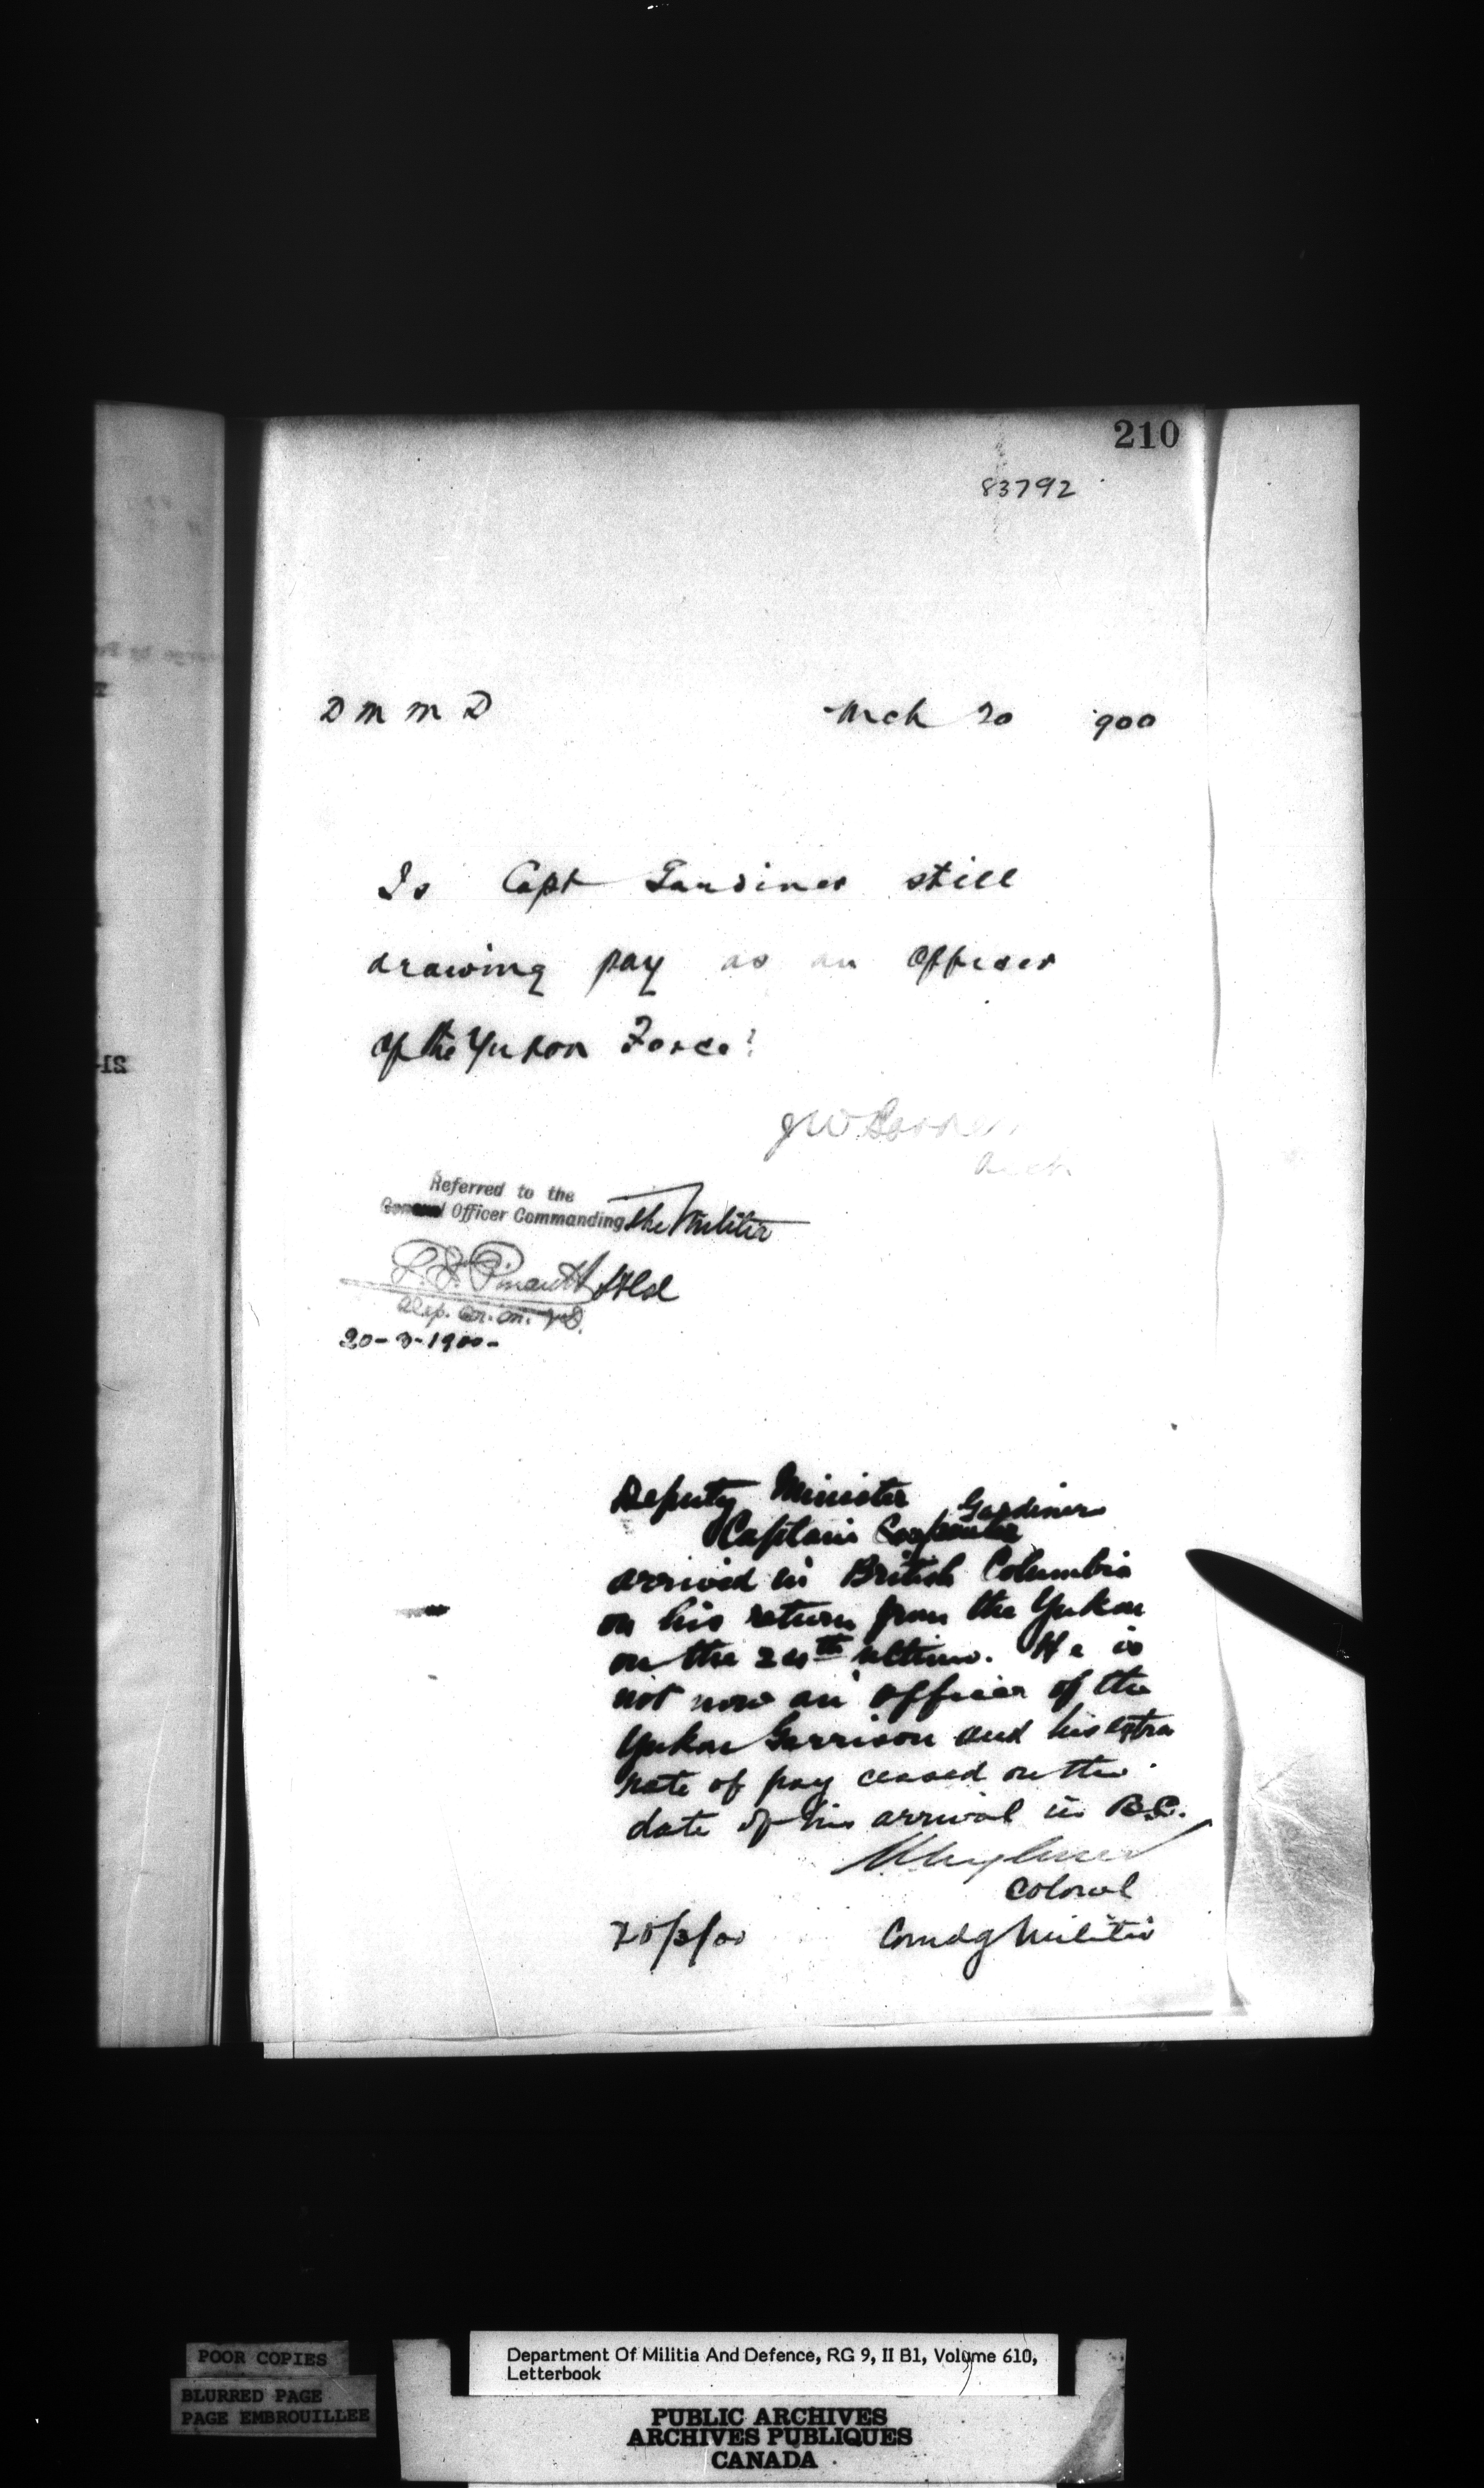 210
83792
D M M D Mch 20 900
Is Capt Gardiner still
drawing pay as an Officer
of the Yukon Force?
J W Borden
Acct
Referred to the
General Officer Commanding the Militia
Lt Col
Dep. M. M. & D.
20-3-1900-
Deputy Minister
Gardiner
Captain Carpenter
arrived in British Columbia
on his return from the Yukon
on the 24th ultimo. He is
not now an officer of the
Yukon Garrison and his extra
rate of pay ceased on the
date of his arrival in B.C.
Colonel
20/3/00 Comdg Militia
POOR COPIES
BLURRED PAGE
PAGE EMBROUILLEE
Department Of Militia And Defence, RG 9, II B1, Volume 610,
Letterbook
PUBLIC ARCHIVES
ARCHIVES PUBLIQUES
CANADA